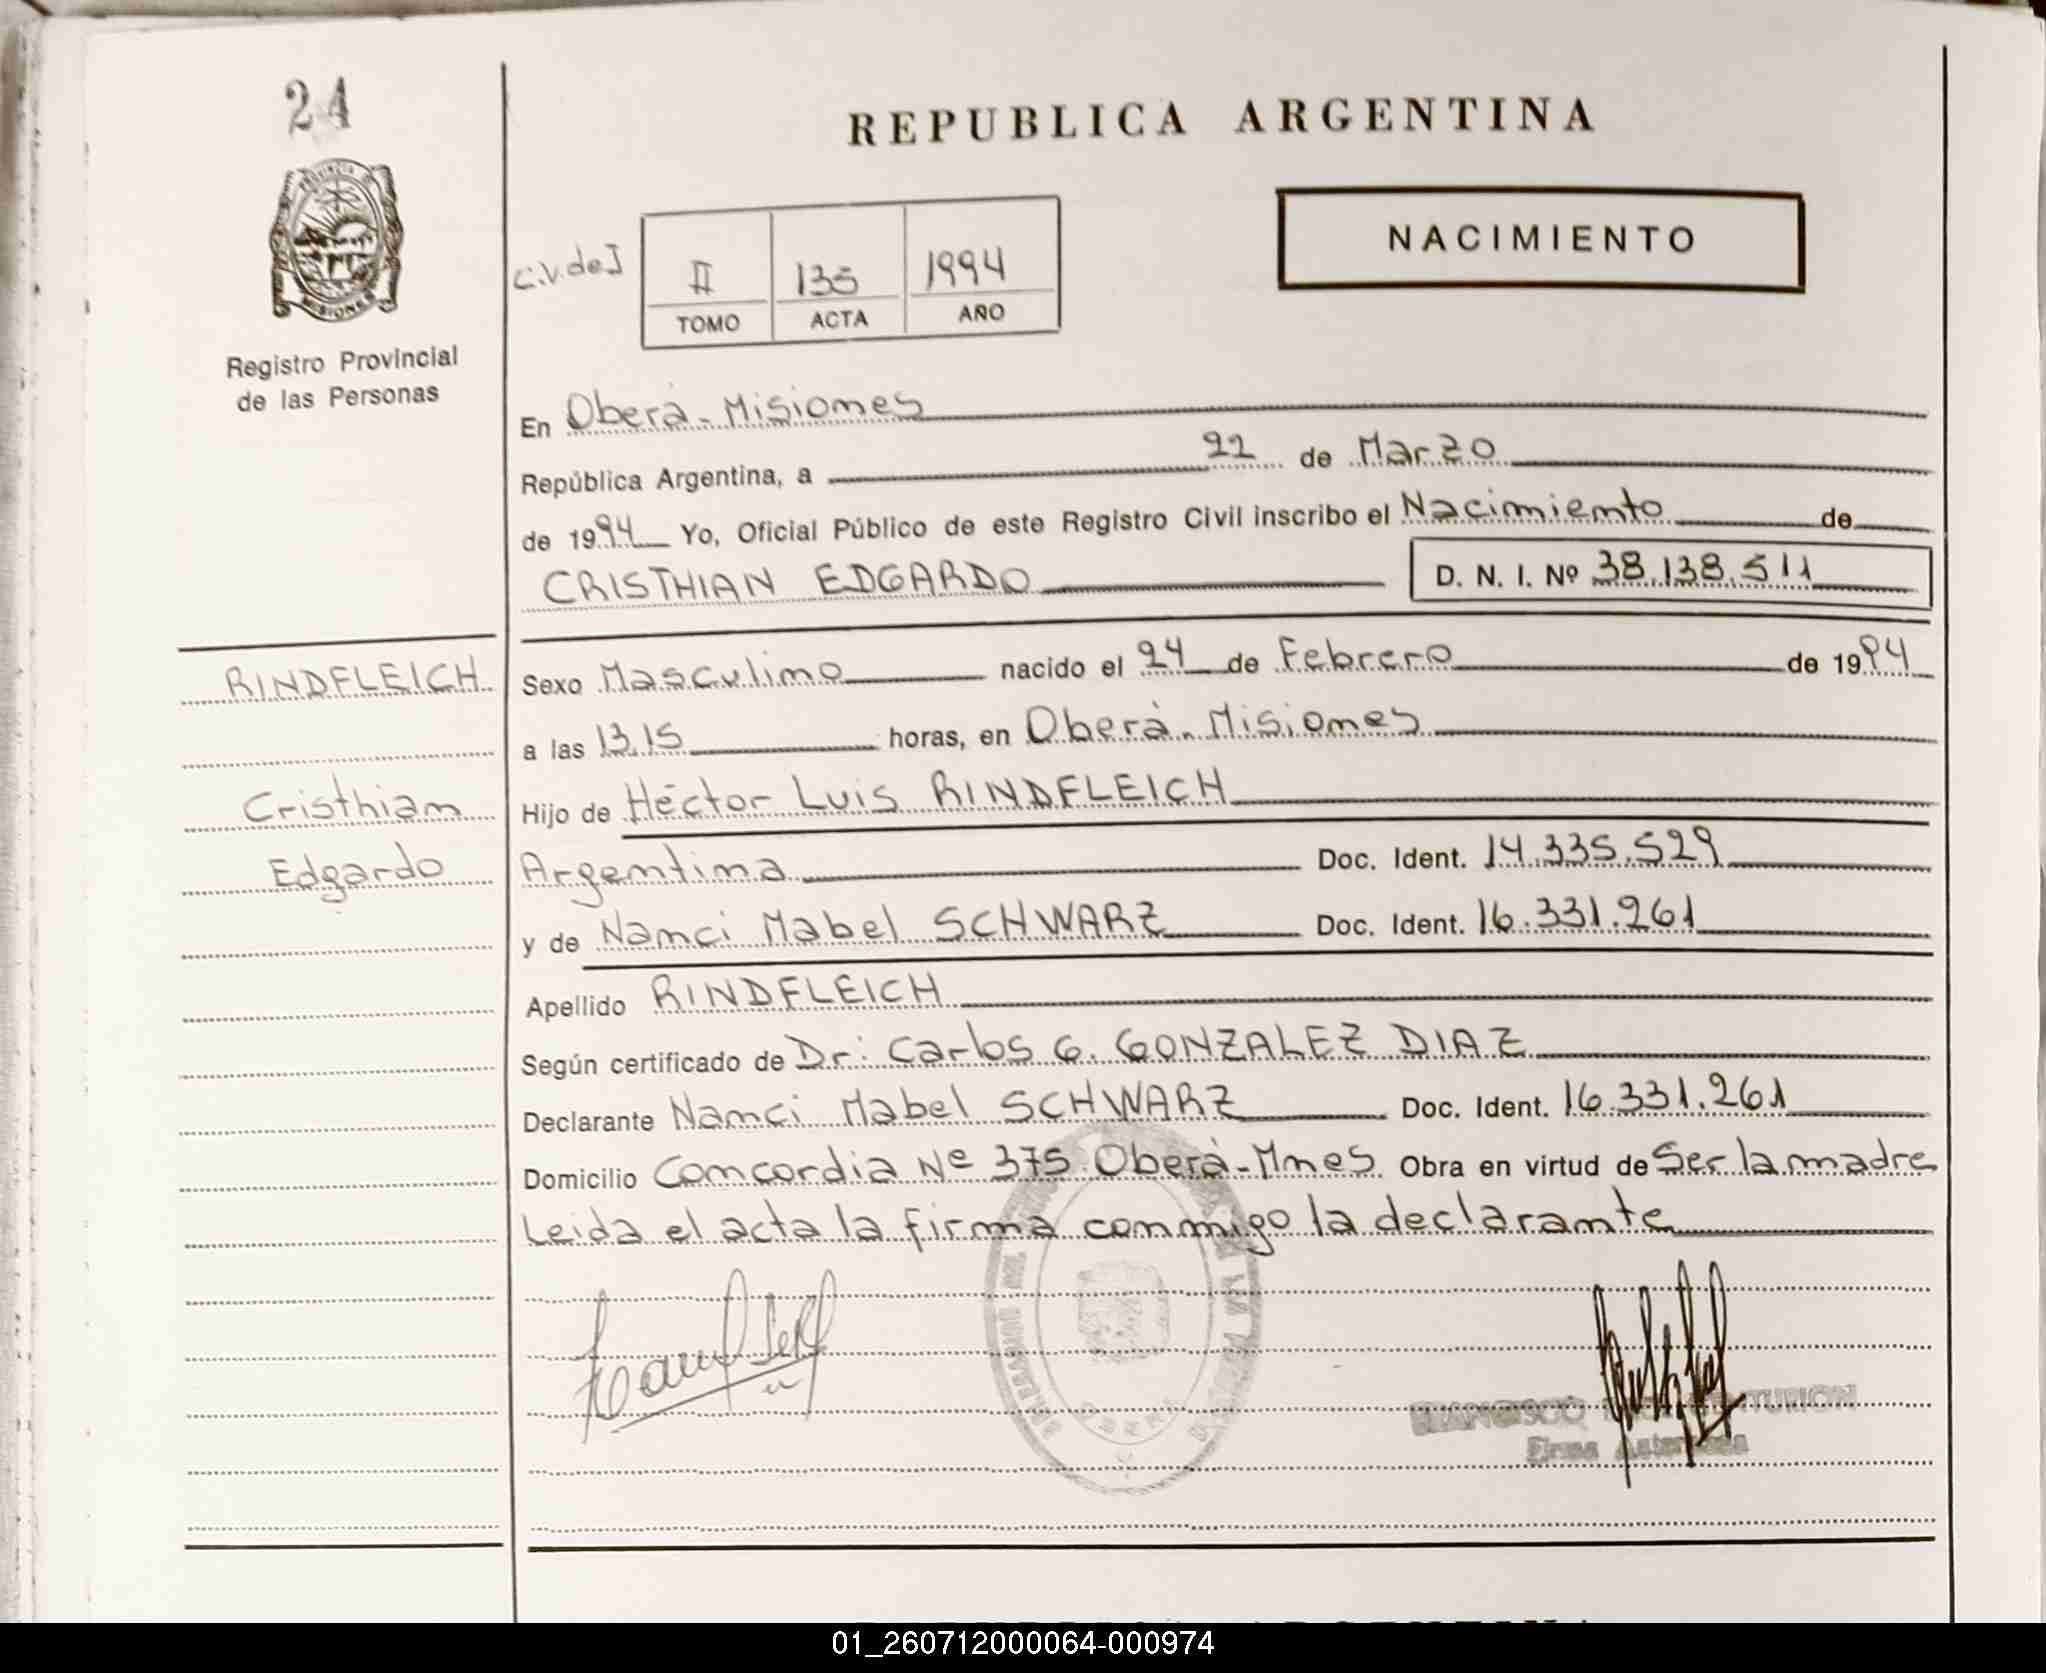 24
REPUBLICA ARGENTINA
NACIMIENTO
C.V. de I
II 135 1994
TOMO ACTA AÑO
PROVINCIA DE
MISIONES
Registro Provincial
de las Personas
En Oberà - Misiones
República Argentina, a 22 de Marzo
de 1994 Yo, Oficial Público de este Registro Civil inscribo el Nacimiento de
CRISTHIAN EDGARDO D. N. I. Nº 38.138.511
RINDFLEICH
Cristhian
Edgardo
Sexo Masculino nacido el 24 de Febrero de 1994
a las 13.15 horas, en Oberà. Misiones
Hijo de Héctor Luis RINDFLEICH
Argentina Doc. Ident. 14.335.529
y de Nanci Mabel SCHWARZ Doc. Ident. 16.331.261
Apellido RINDFLEICH
Según certificado de Dr: Carlos G. GONZALEZ DIAZ
Declarante Nanci Mabel SCHWARZ Doc. Ident. 16.331.261
Domicilio Concordia Nº 375. Oberà - Mnes Obra en virtud de Ser la madre
Leida el acta la firma conmigo la declarante
OBERA
Firma Autorizada
01_260712000064-000974